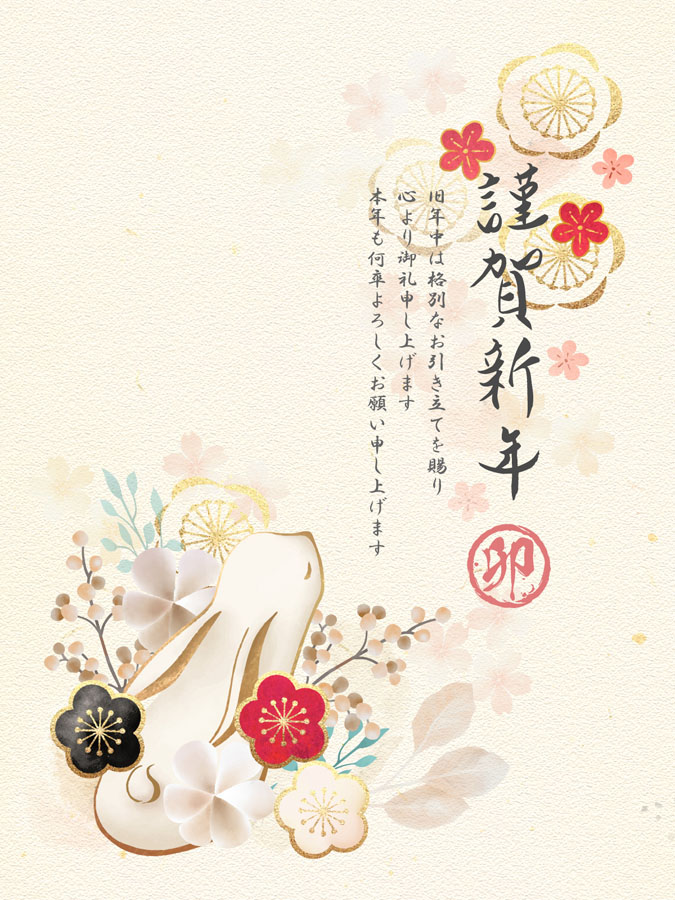 謹賀新年
旧年中は格別なお引き立てを賜り
心より御礼申し上げます
本年も何卒よろしくお願い申し上げます
卯